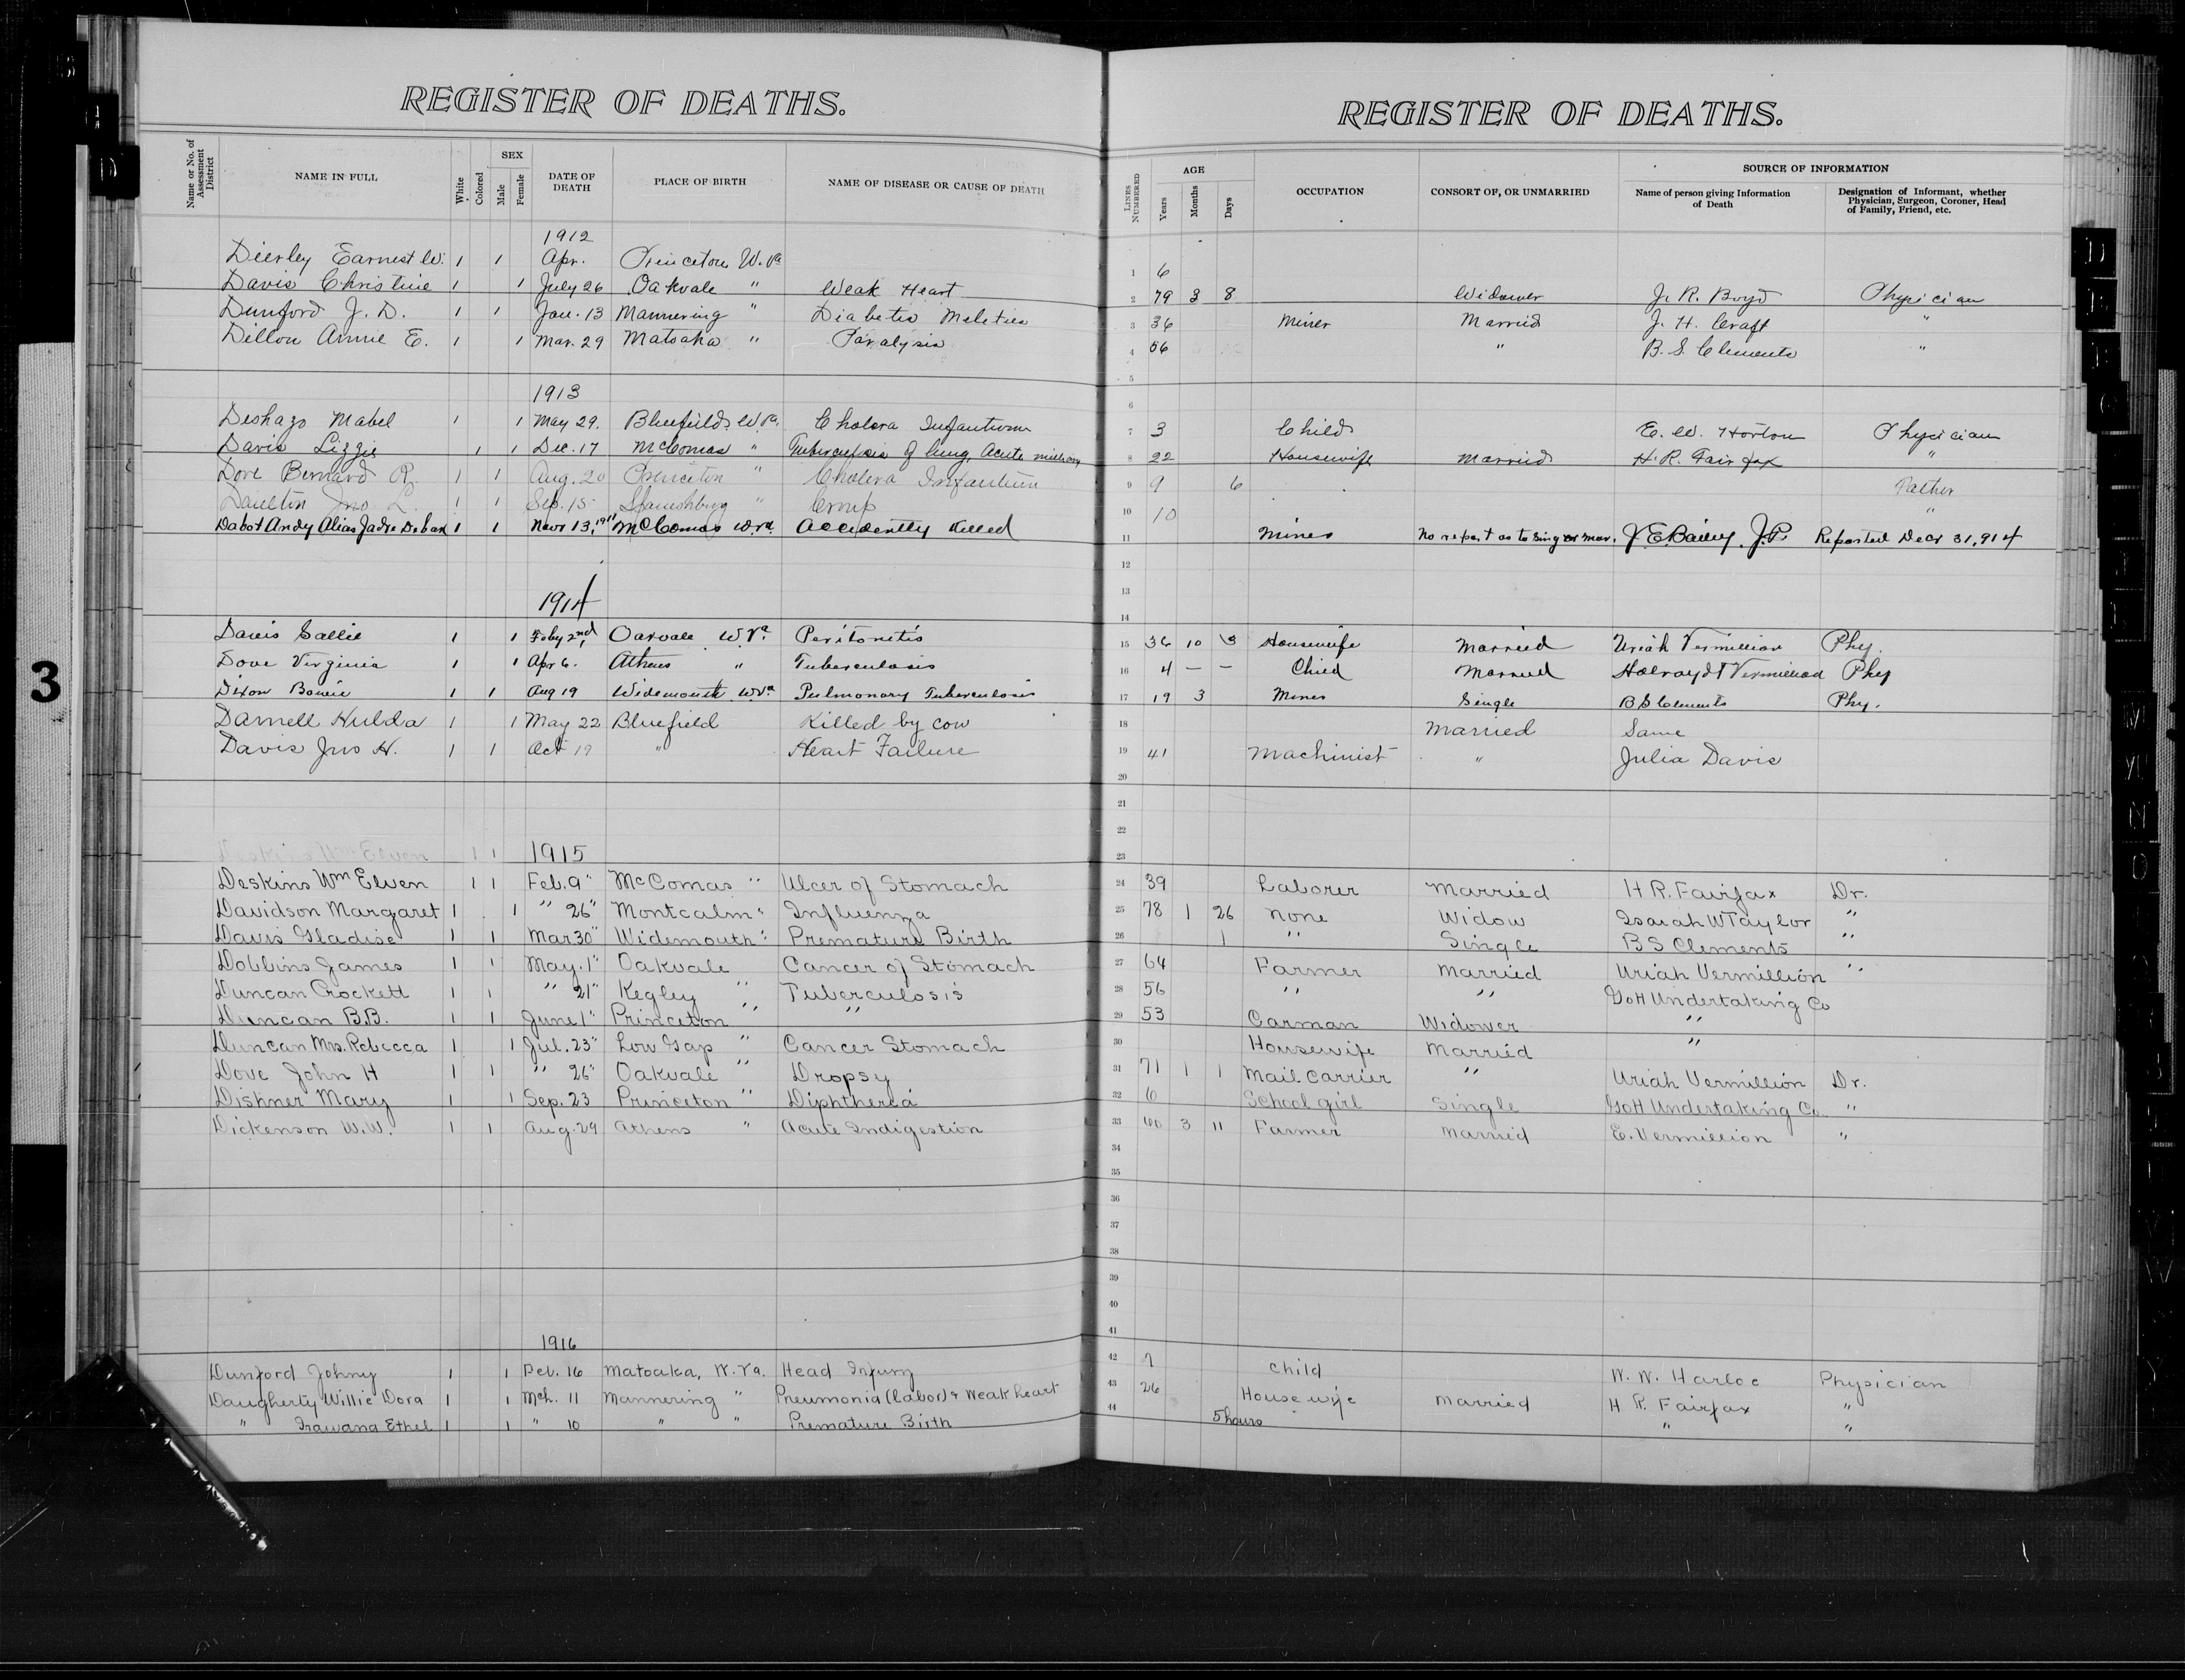 REGISTER OF DEATHS.
REGISTER OF DEATHS.
Name or No. of Assessment District
NAME IN FULL
White
Colored
SEX
Male
Female
DATE OF DEATH
PLACE OF BIRTH
NAME OF DISEASE OR CAUSE OF DEATH
LINES NUMBERED
AGE
Years
Months
Days
OCCUPATION
CONSORT OF, OR UNMARRIED
SOURCE OF INFORMATION
Name of person giving Information of Death
Designation of Informant, whether Physician, Surgeon, Coroner, Head of Family, Friend, etc.
1912
Earnest W. 1 1 Apr. Princeton W. Va 1 6
Davis Christine 1 1 July 26 Oakvale " Weak Heart 2 79 3 8 Widower J. R. Boyd Physician
Dunford J. D. 1 1 Jan. 13 Mannering " Diabetis 3 36 Miner Married J. H. Craft "
Dillon Annie E. 1 1 Mar. 29 Matoaka " Paralysis 4 56 " B. S. Clements "
5
1913 6
Deshazo Mabel 1 1 May 29. Bluefield, W. Va. Cholera Infantum 7 3 Child E. W. Horton Physician
Davis Lizzie 1 1 Dec. 17 McComas " Tuberculosis of lung, Acute 8 22 Housewife Married H. R. Fairfax "
Dove Bernard R. 1 1 Aug. 20 Princeton " Cholera Infantum 9 9 6 Father
Jno L. 1 1 Sep. 15 Spanishburg " Croup 10 10 "
Dabot Andy Alias Jadre 1 1 Novr 13, McComas W.Va. Accidently Killed 11 Miner No report as to sing or mar. J. E. Bailey, J.P. Reported Decr 31, 914
12
13
1914 14
Davis Callie 1 1 Feby 2nd, Oakvale W.Va. Peritonitis 15 36 10 Housewife Married Uriah Vermillion Phy.
Dove Virginia 1 1 Apr 6. Athens " Tuberculosis 16 4 — — Child Married Holroyd & Vermillion Phy
Dixon 1 1 Aug 19 Widemouth W.Va Pulmonary Tuberculosis 17 19 3 Miner Single B S Clements Phy.
Darnell Hulda 1 1 May 22 Bluefield Killed by cow 18 Married Same
Davis Jno H. 1 1 Oct 19 " Heart Failure 19 41 Machinist " Julia Davis
20
21
22
Deskins Wm Elven 1 1 1915 23
Deskins Wm Elven 1 1 Feb. 9" McComas " Ulcer of Stomach 24 39 Laborer Married H R. Fairfax Dr.
Davidson Margaret 1 1 " 26" Montcalm " Influenza 25 78 1 26 None Widow Isaiah W Taylor "
Davis Gladise 1 1 Mar 30" Widemouth " Premature Birth 26 1 " Single B S Clements "
Dobbins James 1 1 May. 1" Oakvale Cancer of Stomach 27 64 Farmer Married Uriah Vermillion "
Duncan Crockett 1 1 " 21" Kegley " Tuberculosis 28 56 " " GoH Undertaking Co
Duncan B.B. 1 1 June 1" Princeton " " 29 53 Carman Widower "
Duncan Mrs. Rebecca 1 1 Jul. 23" Low Gap " Cancer Stomach 30 Housewife Married "
Dove John H 1 1 " 26" Oakvale " Dropsy 31 71 1 1 Mail Carrier " Uriah Vermillion Dr.
Dishner Mary 1 1 Sep. 23 Princeton " Diphtheria 32 6 School girl Single GoH Undertaking Co. "
Dickenson W.W. 1 1 Aug. 29 Athens " Acute Indigestion 33 3 11 Farmer Married E. Vermillion "
34
35
36
37
38
39
40
1916 41
Dunford Johny 1 1 Feb. 16 Matoaka, W. Va. Head Injury 42 Child W. W. Harloe Physician
Daugherty Willie Dora 1 1 Mch. 11 Mannering " Pneumonia (Labor) & Weak heart 43 26 Housewife Married H R. Fairfax "
" Ethel 1 1 " 10 " " Premature Birth 44 5 hours " "
3